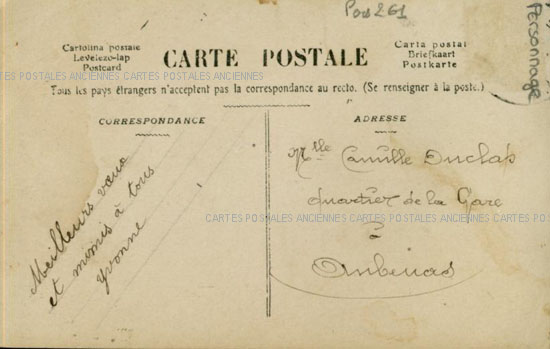 Pos 261
Personnage
Cartolina postale
Levelezo-lap
Postcard
CARTE POSTALE
Carta postal
Briefkaart
Postkarte
CARTES POSTALES ANCIENNES CARTES POSTALES ANCIENNES CARTES POSTALES ANCIENNES
Tous les pays étrangers n'acceptent pas la correspondance au recto. (Se renseigner à la poste.)
CORRESPONDANCE
Meilleurs vœux
et mimis à tous
Yvonne
ADRESSE
Mlle Camille Duclap
Quartier de la Gare
CARTES POSTALES ANCIENNES CARTES POSTALES ANCIENNES CARTES POSTALES
Aubenas